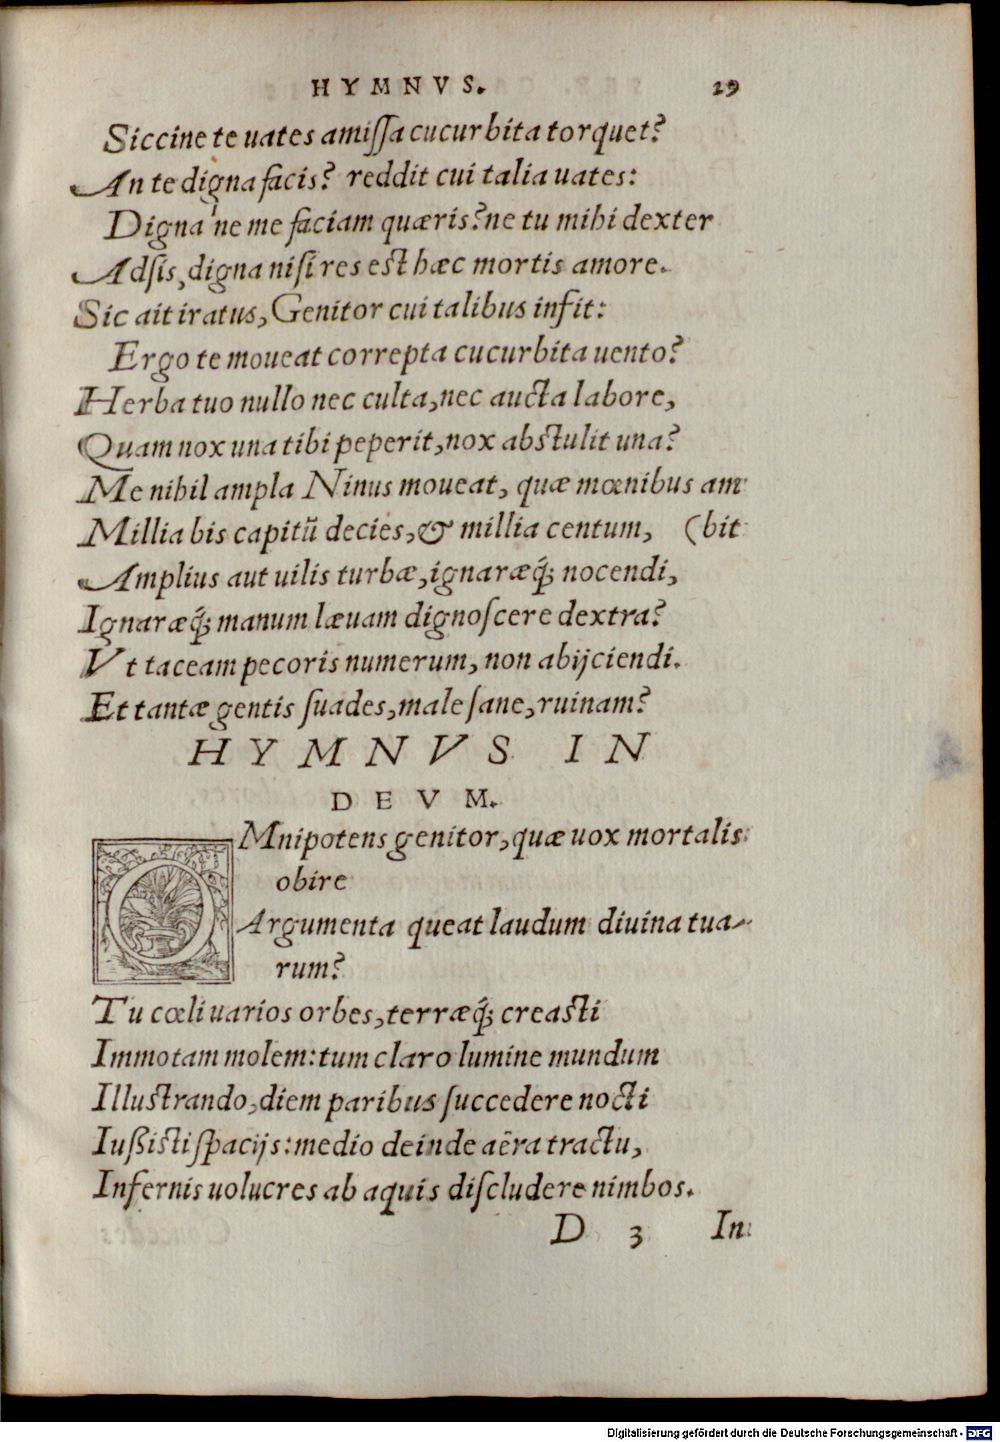 HYMNVS. 29
Siccine te uates amissa cucurbita torquet?
An te digna facis? reddit cui talia uates:
Digna'ne me faciam quæris? ne tu mihi dexter
Adsis, digna nisi res est hæc mortis amore.
Sic ait iratus, Genitor cui talibus infit:
Ergo te moueat correpta cucurbita uento?
Herba tuo nullo nec culta, nec aucta labore,
Quam nox una tibi peperit, nox abstulit una?
Me nihil ampla Ninus moueat, quæ mœnibus am
Millia bis capitũ decies, & millia centum, (bit
Amplius aut uilis turbæ, ignaræq́; nocendi,
Ignaræq́; manum læuam dignoscere dextra?
Vt taceam pecoris numerum, non abijciendi.
Et tantæ gentis suades, male sane, ruinam?
HYMNVS IN
DEVM.
OMnipotens genitor, quæ uox mortalis
obire
Argumenta queat laudum diuina tua-
rum?
Tu cœli uarios orbes, terræq́; creasti
Immotam molem: tum claro lumine mundum
Illustrando, diem paribus succedere nocti
Iußisti spacijs: medio deinde aëra tractu,
Infernis uolucres ab aquis discludere nimbos.
D 3 In
Digitalisierung gefördert durch die Deutsche Forschungsgemeinschaft - DFG